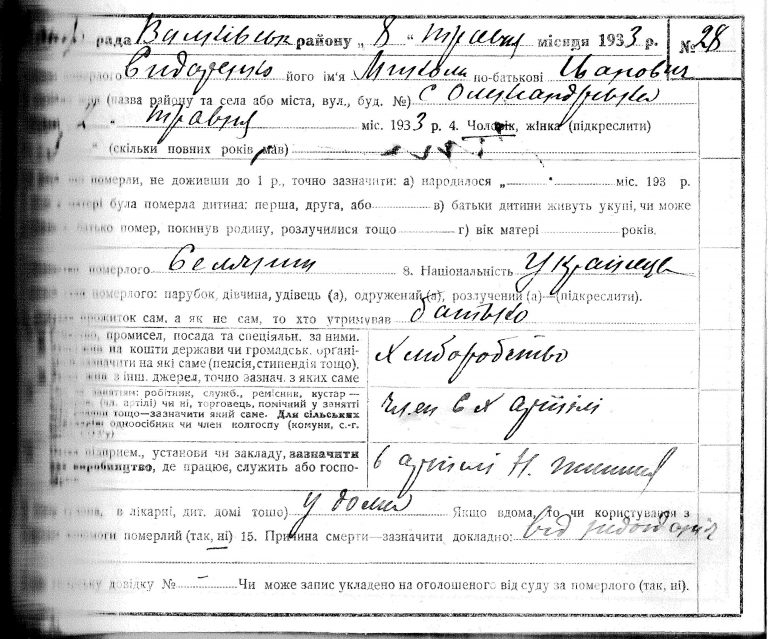 рада Валківськ району „ 8 “ травня місяця 1933 р. № 28
його ім'я Микола по-батькові
(назва району та села або міста, вул., буд. №) с Олександрівка
травня міс. 1933 р. 4. Чоловік, жінка (підкреслити)
(скільки повних років мав)
померли, не доживши до 1 р., точно зазначити: а) народилося „ “ міс. 193 р.
була померла дитина: перша, друга, або в) батьки дитини живуть укупі, чи може
помер, покинув родину, розлучилися тощо г) вік матері років.
померлого Селянин 8. Національність Українець
померлого: парубок, дівчина, удівець (а), одружений (а), розлучений (а)—(підкреслити).
сам, а як не сам, то хто утримував батько
промисел, посада та спеціяльн. за ними.
на кошти держави чи громадськ. органі-
на які саме (пенсія, стипендія тощо).
з інш. джерел, точно зазнач. з яких саме
Хліборобство
робітник, служб., ремісник, кустар —
артілі) чи ні, торговець, помічний у занятті
тощо—зазначити який саме. Для сільських
одноосібник чи член колгоспу (комуни, с.-г.
член С Х артілі
установи чи закладу, зазначити
виробництво, де працює, служить або госпо-
в артілі Н.
в лікарні, дит. домі тощо) у дома Якщо вдома, то чи користувався з
померлий (так, ні) 15. Причина смерти—зазначити докладно: від
довідку № – Чи може запис укладено на оголошеного від суду за померлого (так, ні).